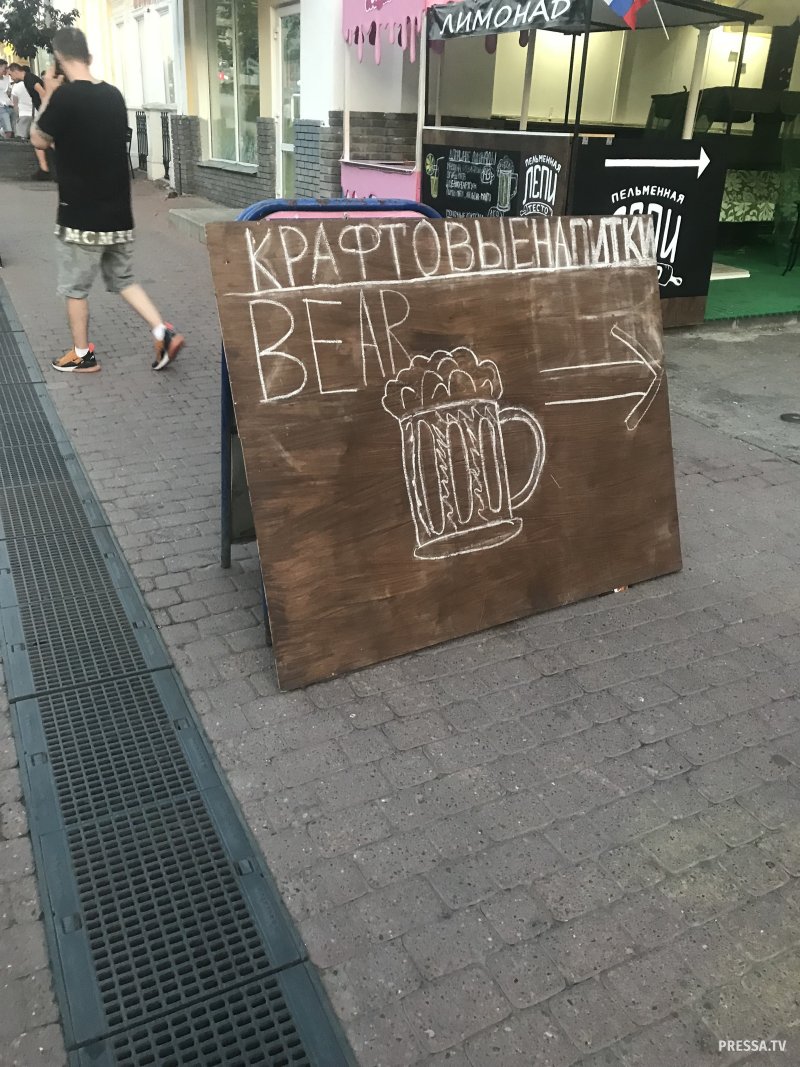 ЛИМОНАД
ПЕЛЬМЕННАЯ
ЛЕПИ
ТЕСТО
ПЕЛЬМЕННАЯ
ЛЕПИ
КРАФТОВЫЕ НАПИТКИ
BEAR
PRESSA.TV